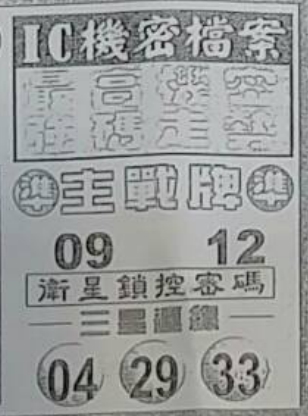 IC機密檔案
最高機密
準主戰牌準
09 12
衛星鎖控密碼
三星連線
04 29 33